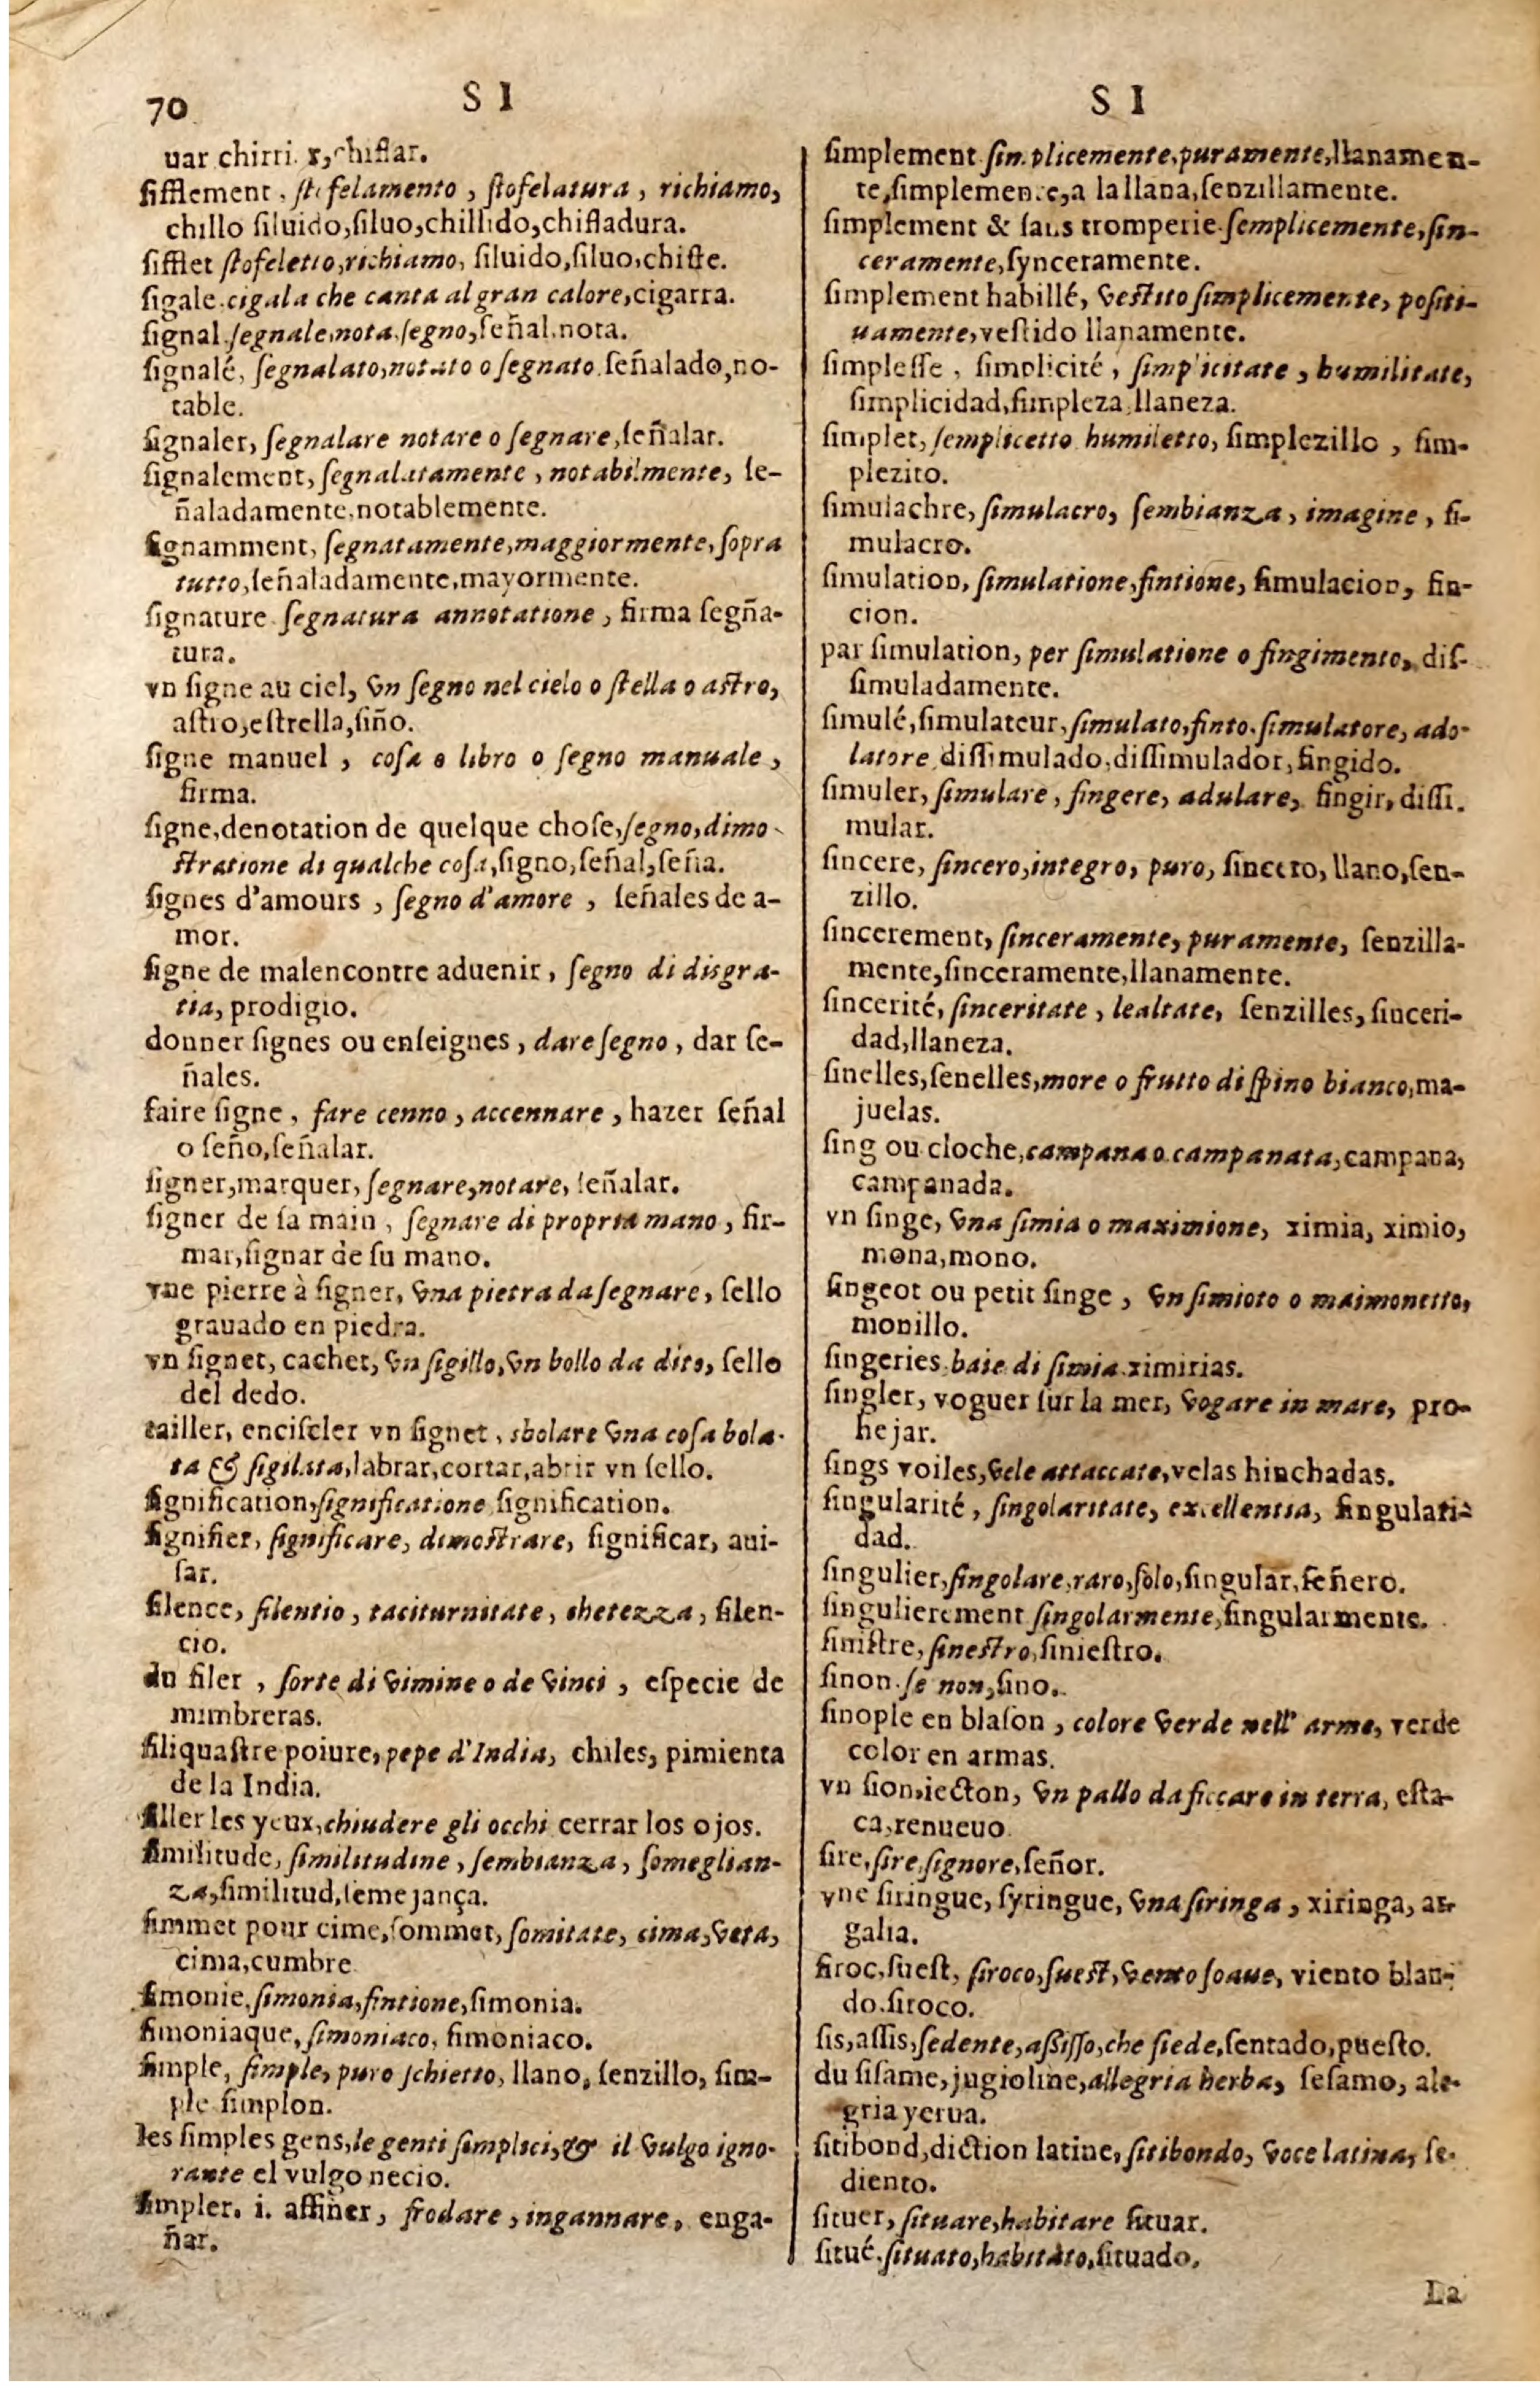 70
S I
uar chirri. r, chiflar.
ſifflement, ſtofelamento, ſtofelatura, richiamo,
chillo ſiluido, ſiluo, chillido, chifladura.
ſifflet ſtofeletto, richiamo, ſiluido, ſiluo, chifle.
ſigale. cigala che canta al gran calore, cigarra.
ſignal. ſegnale, nota. ſegno, ſeñal. nota.
ſignalé, ſegnalato, notato o ſegnato. ſeñalado, no-
table.
ſignaler, ſegnalare notare o ſegnare, ſeñalar.
ſignalement, ſegnalatamente, notabilmente, ſe-
ñaladamente, notablemente.
ſignamment, ſegnatamente, maggiormente, ſopra
tutto, ſeñaladamente, mayormente.
ſignature. ſegnatura annotatione, firma ſegña-
tura.
vn ſigne au ciel, vn ſegno nel cielo o ſtella o aſtro,
aſtro, eſtrella, ſiño.
ſigne manuel, coſa o libro o ſegno manuale,
firma.
ſigne, denotation de quelque choſe, ſegno, dimo-
ſtratione di qualche coſa, ſigno, ſeñal, ſeña.
ſignes d'amours, ſegno d'amore, ſeñales de a-
mor.
ſigne de malencontre aduenir, ſegno di diſgra-
tia, prodigio.
donner ſignes ou enſeignes, dare ſegno, dar ſe-
ñales.
faire ſigne, fare cenno, accennare, hazer ſeñal
o ſeño, ſeñalar.
ſigner, marquer, ſegnare, notare, ſeñalar.
ſigner de ſa main, ſegnare di propria mano, fir-
mar, ſignar de ſu mano.
vne pierre à ſigner, vna pietra da ſegnare, ſello
grauado en piedra.
vn ſignet, cachet, vn ſigillo, vn bollo da dito, ſello
del dedo.
tailler, enciſeler vn ſignet, sbolare vna coſa bola-
ta & ſigilata, labrar, cortar, abrir vn ſello.
ſignification, ſignificatione ſignification.
ſignifier, ſignificare, dimoſtrare, ſignificar, aui-
ſar.
ſilence, ſilentio, taciturnitate, chetezza, ſilen-
cio.
du ſiler, ſorte di vimine o de vinci, eſpecie de
mimbreras.
ſiliquaſtre poiure, pepe d'India, chiles, pimienta
de la India.
ſiller les yeux, chiudere gli occhi cerrar los ojos.
ſimilitude, ſimilitudine, ſembianza, ſomeglian-
za, ſimilitud, ſemejança.
ſimmet pour cime, ſommet, ſomitate, cima, veta,
cima, cumbre
ſimonie. ſimonia, fintione, ſimonia.
ſimoniaque, ſimoniaco, ſimoniaco.
ſimple, ſimple, puro ſchietto, llano, ſenzillo, ſim-
ple ſimplon.
les ſimples gens, le genti ſimplici, & il vulgo igno-
rante el vulgo necio.
ſimpler. i. affiner, frodare, ingannare, enga-
ñar.
S I
ſimplement ſimplicemente, puramente, llanamen-
te, ſimplemente, a la llana, ſenzillamente.
ſimplement & ſans tromperie. ſemplicemente, ſin-
ceramente, ſynceramente.
ſimplement habillé, veſtito ſimplicemente, poſiti-
uamente, veſtido llanamente.
ſimpleſſe, ſimplicité, ſimplicitate, humilitate,
ſimplicidad, ſimpleza, llaneza.
ſimplet, ſemplicetto humiletto, ſimplezillo, ſim-
plezito.
ſimulachre, ſimulacro, ſembianza, imagine, ſi-
mulacro.
ſimulation, ſimulatione, fintione, ſimulacion, fin-
cion.
par ſimulation, per ſimulatione o fingimento, diſ-
ſimuladamente.
ſimulé, ſimulateur, ſimulato, finto. ſimulatore, ado-
latore. diſſimulado, diſſimulador, fingido.
ſimuler, ſimulare, fingere, adulare, fingir, diſſi.
mular.
ſincere, ſincero, integro, puro, ſincero, llano, ſen-
zillo.
ſincerement, ſinceramente, puramente, ſenzilla-
mente, ſinceramente, llanamente.
ſincerité, ſinceritate, lealtate, ſenzilles, ſinceri-
dad, llaneza.
ſinelles, ſenelles, more o frutto di ſpino bianco, ma-
juelas.
ſing ou cloche, campana o campanata, campana,
campanada.
vn ſinge, vna ſimia o maximione, ximia, ximio,
mona, mono.
ſingeot ou petit ſinge, vn ſimioto o maimonetto,
monillo.
ſingeries. baie di ſimia ximirias.
ſingler, voguer ſur la mer, vogare in mare, pro-
hejar.
ſings voiles, vele attaccate, velas hinchadas.
ſingularité, ſingolaritate, excellentia, ſingulari-
dad.
ſingulier, ſingolare, raro, ſolo, ſingular, ſeñero.
ſingulierement ſingolarmente, ſingularmente.
ſiniſtre, ſineſtro, ſinieſtro.
ſinon. ſe non, ſino.
ſinople en blaſon, colore verde nell' arme, verde
color en armas.
vn ſion, iecton, vn pallo da ficcare in terra, eſta-
ca, renueuo
ſire, ſire, ſignore, ſeñor.
vne ſiringue, ſyringue, vna ſiringa, xiringa, ar-
galia.
ſiroc, ſueſt, ſiroco, ſueſt, vento ſoaue, viento blan-
do. ſiroco.
ſis, aſſis, ſedente, aſſiſſo, che ſiede, ſentado, pueſto.
du ſiſame, jugioline, allegria herba, ſeſamo, ale-
gria yerua.
ſitibond, diction latine, ſitibondo, voce latina, ſe-
diento.
ſituer, ſituare, habitare ſituar.
ſitué. ſituato, habitato, ſituado.
La